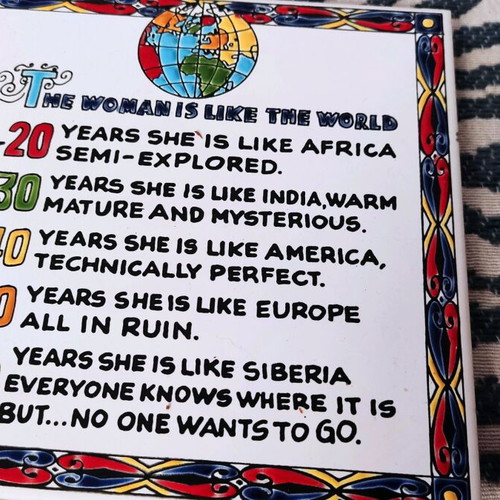 THE WOMAN IS LIKE THE WORLD
-20 YEARS SHE IS LIKE AFRICA
SEMI-EXPLORED.
30 YEARS SHE IS LIKE INDIA, WARM
MATURE AND MYSTERIOUS.
0 YEARS SHE IS LIKE AMERICA,
TECHNICALLY PERFECT.
0 YEARS SHE IS LIKE EUROPE
ALL IN RUIN.
YEARS SHE IS LIKE SIBERIA
EVERYONE KNOWS WHERE IT IS
BUT...NO ONE WANTS TO GO.